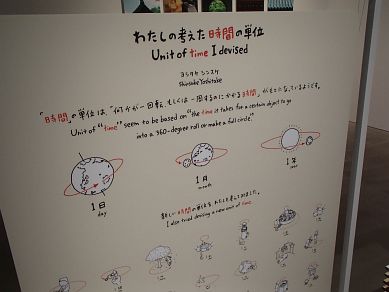 わたしの考えた時間の単位
Unit of time I devised
ヨシタケ シンスケ
Shinsuke Yoshitake
「時間」の単位は、「何かが一回転、もしくは一周するのにかかる時間」がもとになっているようです。
Unit of "time" seem to be based on "the time it takes for a certain object to go
into a 360-degree roll or make a full circle."
1日
day
1月
month
1年
year
新しい時間の単位を、わたしも考えてみました。
I also tried devising a new unit of time.